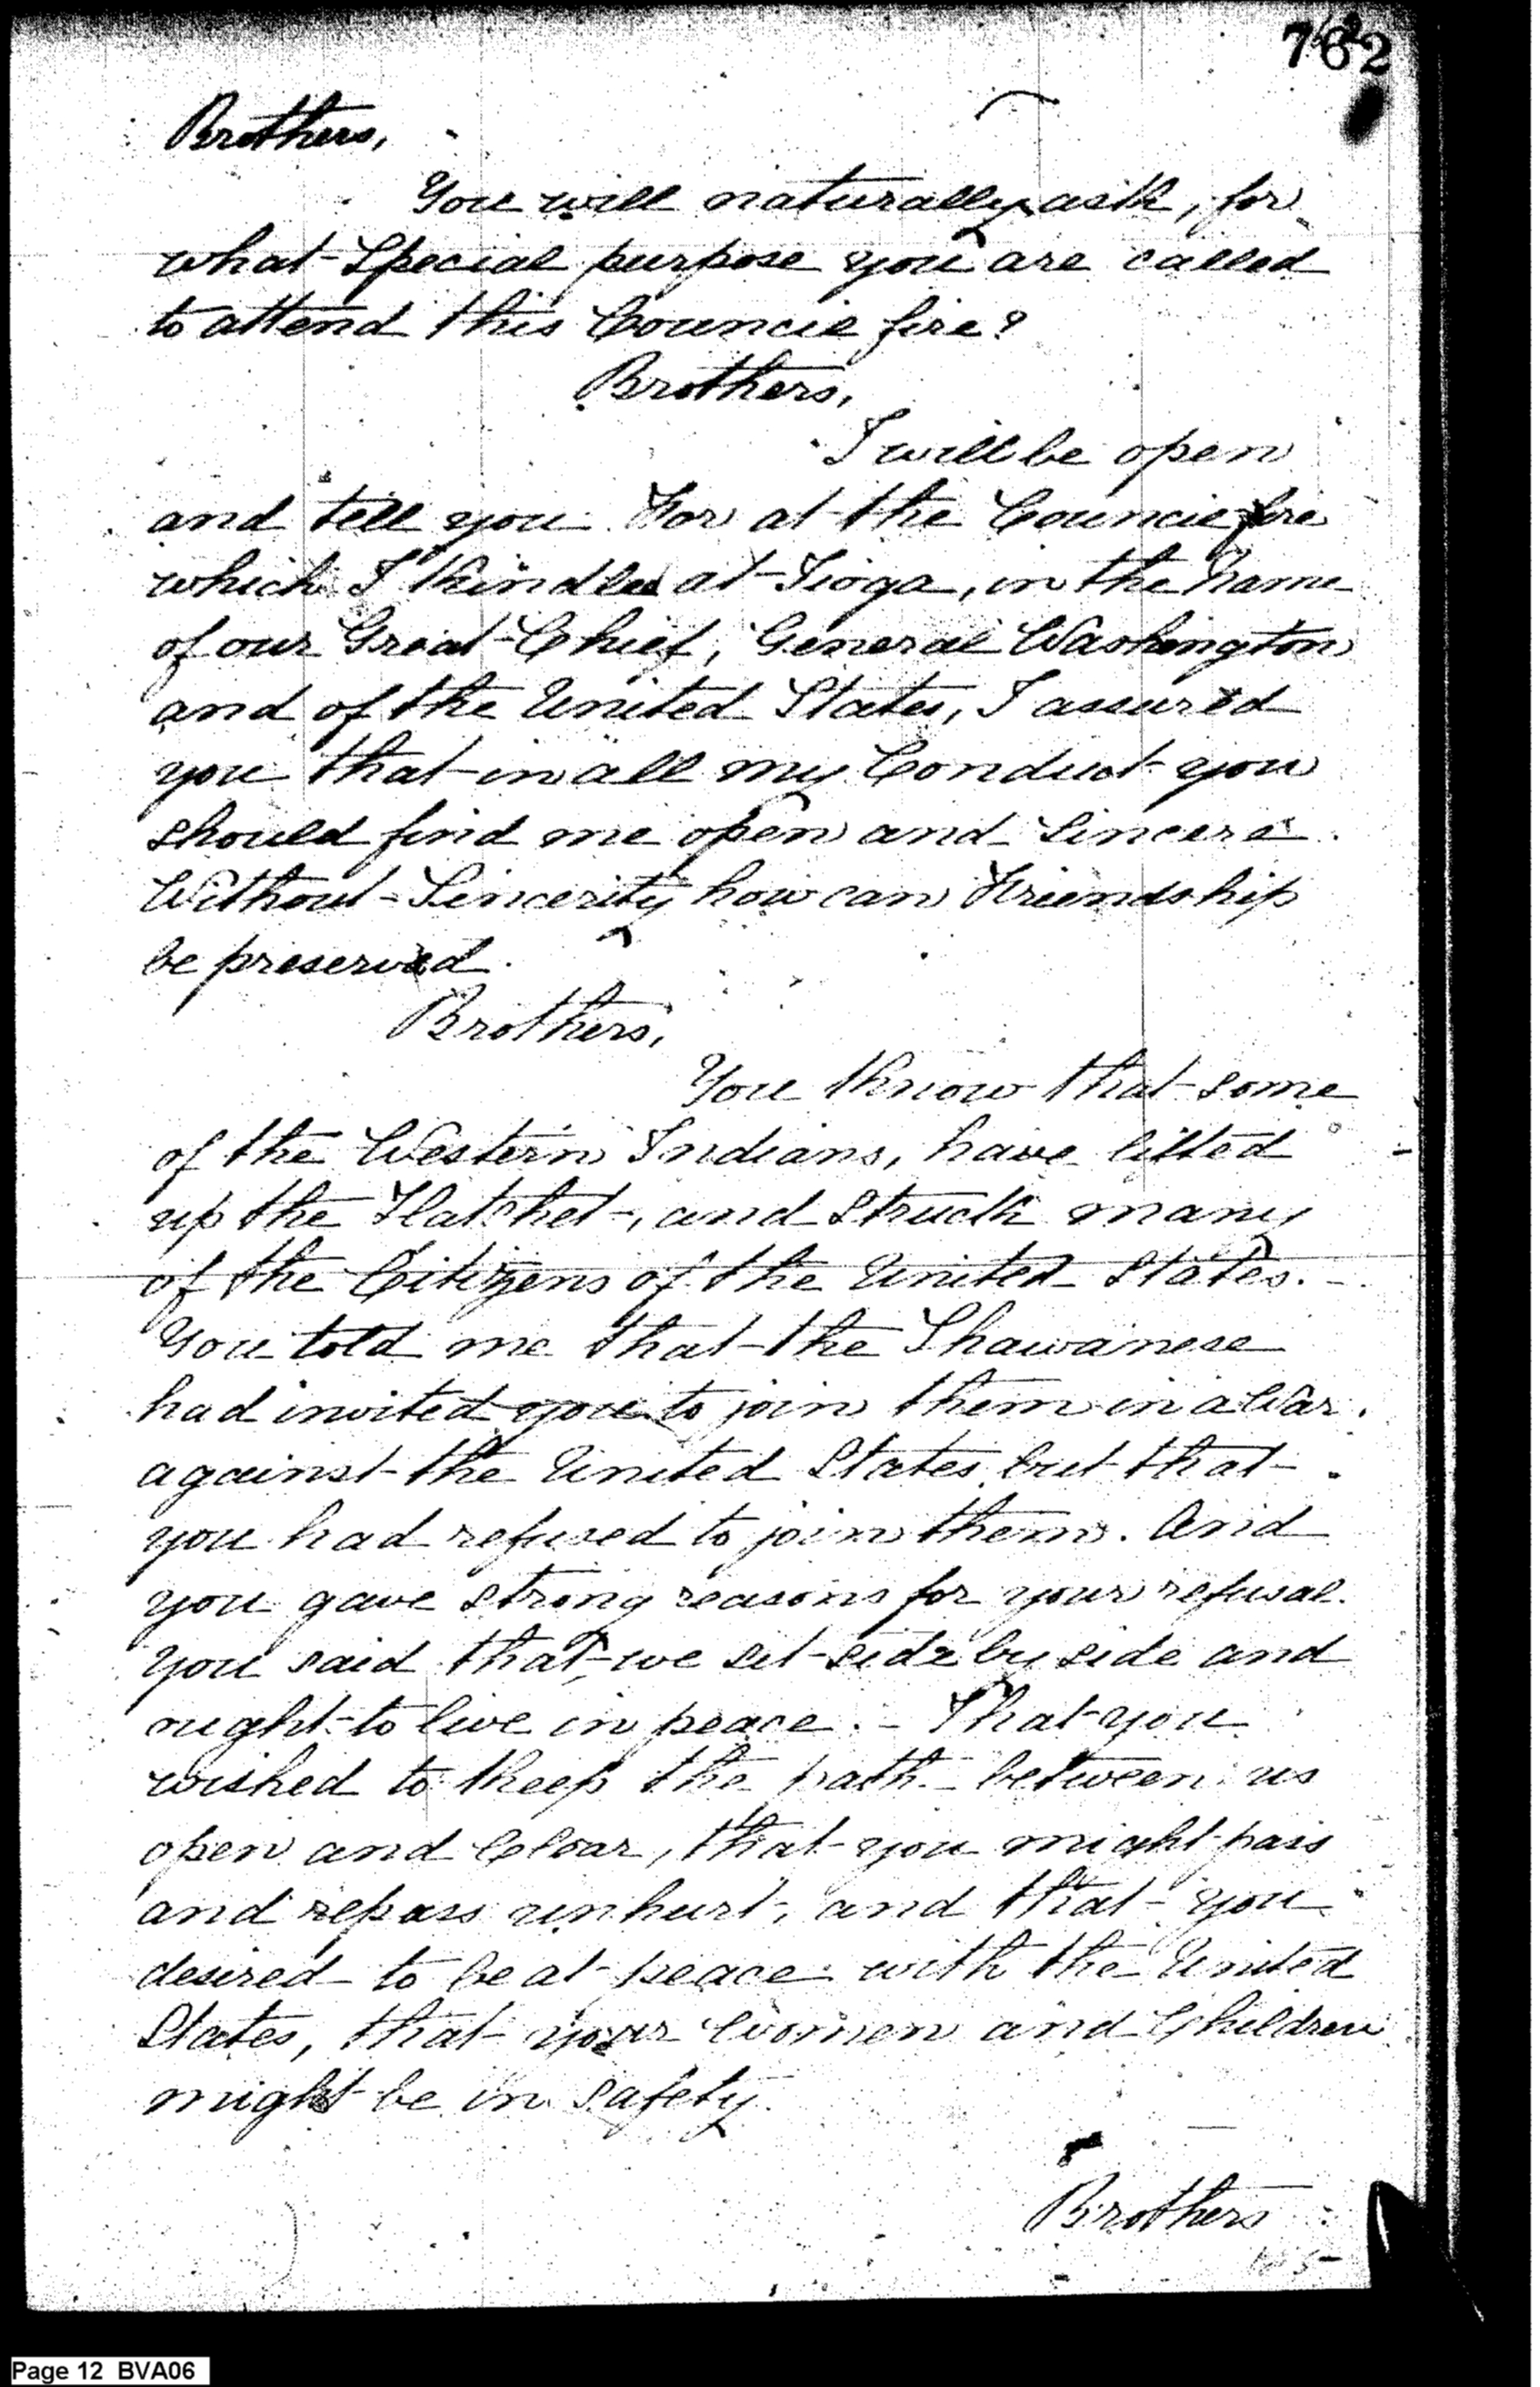 762
Brothers,
You will naturally ask, for
what Special purpose you are called
to attend this Council fire?
Brothers,
I will be open
and tell you. For at the Council fire
which I kindled at Tioga, in the Name
of our Great Chief, General Washington
and of the United States, I assured
you that in all my Conduct you
should find me open and sincere.
Without Sincerity how can Friendship
be preserved.
Brothers,
You know that some
of the Western Indians, have lifted
up the Hatchet, and struck many
of the Citizens of the United States. -
You told me that the Shawanese
had invited you to join them in a War
against the United States but that
you had refused to join them. And
you gave strong reasons for your refusal.
You said that we set side by side and
ought to live in peace. - That you
wished to keep the path between us
open and Clear, that you might pass
and repass unhurt, and that you
desired to be at peace with the United
States, that your Women and Children
might be in safety.
Brothers
Page 12 BVA06